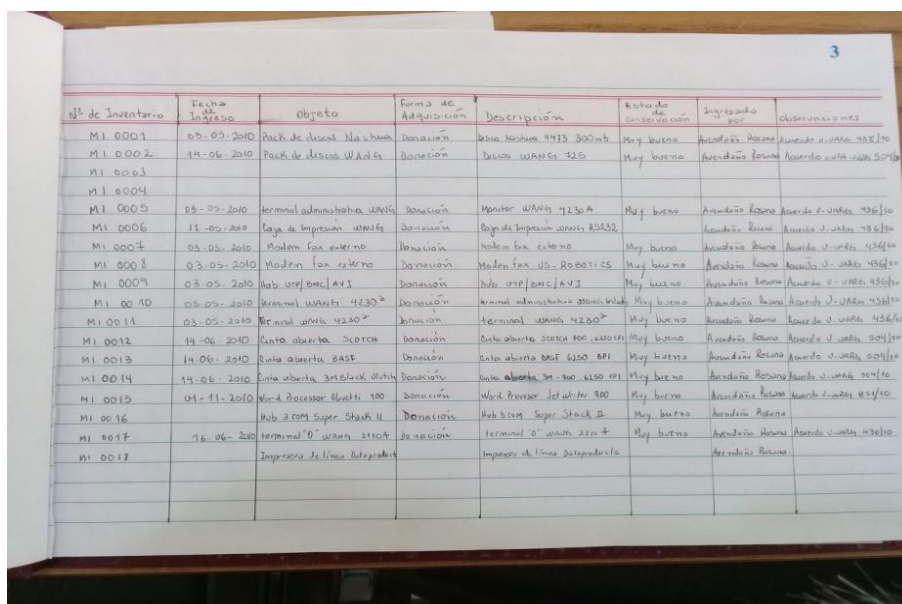 3
Nº de Inventario Fecha de Ingreso Objeto Forma de Adquisición Descripción Estado de Conservación Ingresado por observaciones
MI 0001 03-05-2010 Pack de discos Nashua Donación Disco Nashua 4473 300mb Muy bueno Avendaño Rosana Acuerdo U-UARG
MI 0002 14-06-2010 Pack de discos WANG Donación Discos WANG 725 Muy bueno Avendaño Rosana Acuerdo 504/10
MI 0003
MI 0004
MI 0005 03-05-2010 terminal administrativa WANG Donación Monitor WANG 4230A Muy bueno Avendaño Rosana Acuerdo U-UARG 436/10
MI 0006 Caja de Impresión WANG Donación Caja de Impresión WANG RS232 Avendaño Rosana Acuerdo U-UARG 436/10
MI 0007 03-05-2010 Modem fax externo Donación Modem fax externo Muy bueno Avendaño Rosana Acuerdo U-UARG 436/10
MI 0008 03-05-2010 Modem fax externo Donación Modem fax US-ROBOTICS Muy bueno Avendaño Rosana Acuerdo U-UARG 436/10
MI 0009 03-05-2010 hub UTP/BNC/AVI Donación hub UTP/BNC/AVI Muy bueno Avendaño Rosana Acuerdo U-UARG 436/10
MI 0010 03-05-2010 terminal WANG 4230 Donación terminal administrativa WANG Muy bueno Avendaño Rosana Acuerdo U-UARG 436/10
MI 0011 03-05-2010 terminal WANG 4230 Donación terminal WANG 4230 Muy bueno Avendaño Rosana Acuerdo U-UARG 436/10
MI 0012 14-06-2010 Cinta abierta SCOTCH Donación Cinta abierta SCOTCH 700, 6250 CPI Muy bueno Avendaño Rosana Acuerdo U-UARG 504/10
MI 0013 14-06-2010 Cinta abierta BASF Donación Cinta abierta BASF 6250 BPI Muy bueno Avendaño Rosana Acuerdo U-UARG 504/10
MI 0014 14-06-2010 Cinta abierta 3M Black Donación Cinta abierta 3M-700, 6250 CPI Muy bueno Avendaño Rosana Acuerdo U-UARG 504/10
MI 0015 01-11-2010 Word Processor Olivetti 900 Donación Word Processor Jet Writer 900 Muy bueno Avendaño Rosana Acuerdo U-UARG
MI 0016 Hub 3com Super Stack II Donación Hub 3com Super Stack II Muy bueno Avendaño Rosana
MI 0017 16-06-2010 terminal "O" WANG 2110A Donación terminal "O" WANG 2110A Muy bueno Avendaño Rosana Acuerdo U-UARG 436/10
MI 0018 Impresora de línea Dataproducts Impresora de línea Dataproducts Avendaño Rosana